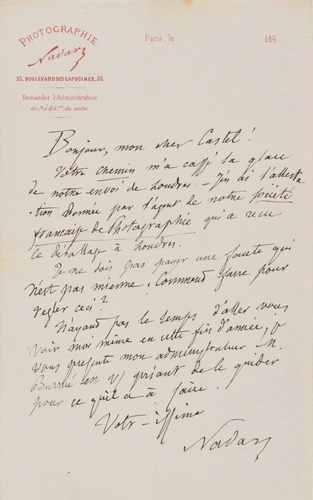 PHOTOGRAPHIE
Nadar
35, BOULEVARD DES CAPUCINES, 35.
Demander l'Administrateur
Paris, le 186
Bonjour, mon cher Castel!
Votre chemin m'a cassé la glace
de notre envoi de Londres. — J'ai de l'attesta
tion donnée par l'agent de notre Société
française de Photographie qui a reçu
ce déballage à Londres.
Je ne dois pas payer une faute qui
n'est pas mienne. Comment faire pour
régler ceci?
N'ayant pas le temps d'aller vous
voir moi même en cette fin d'année, je
vous présente mon administrateur M.
en vous priant de le guider
pour ce qu'il a à faire.
Votr-issime
Nadar